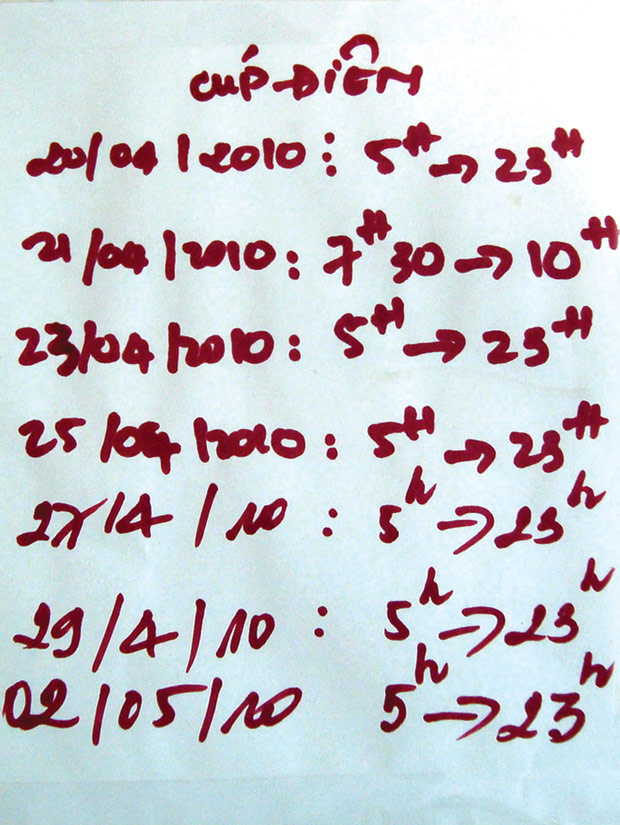 CÚP ĐIÊN
20/04/2010: 5H → 23H
21/04/2010: 7H30 → 10H
23/04/2010: 5H → 23H
25/04/2010: 5H → 23H
27/4/10 : 5h → 23h
29/4/10 : 5h → 23h
02/05/10 5h → 23h